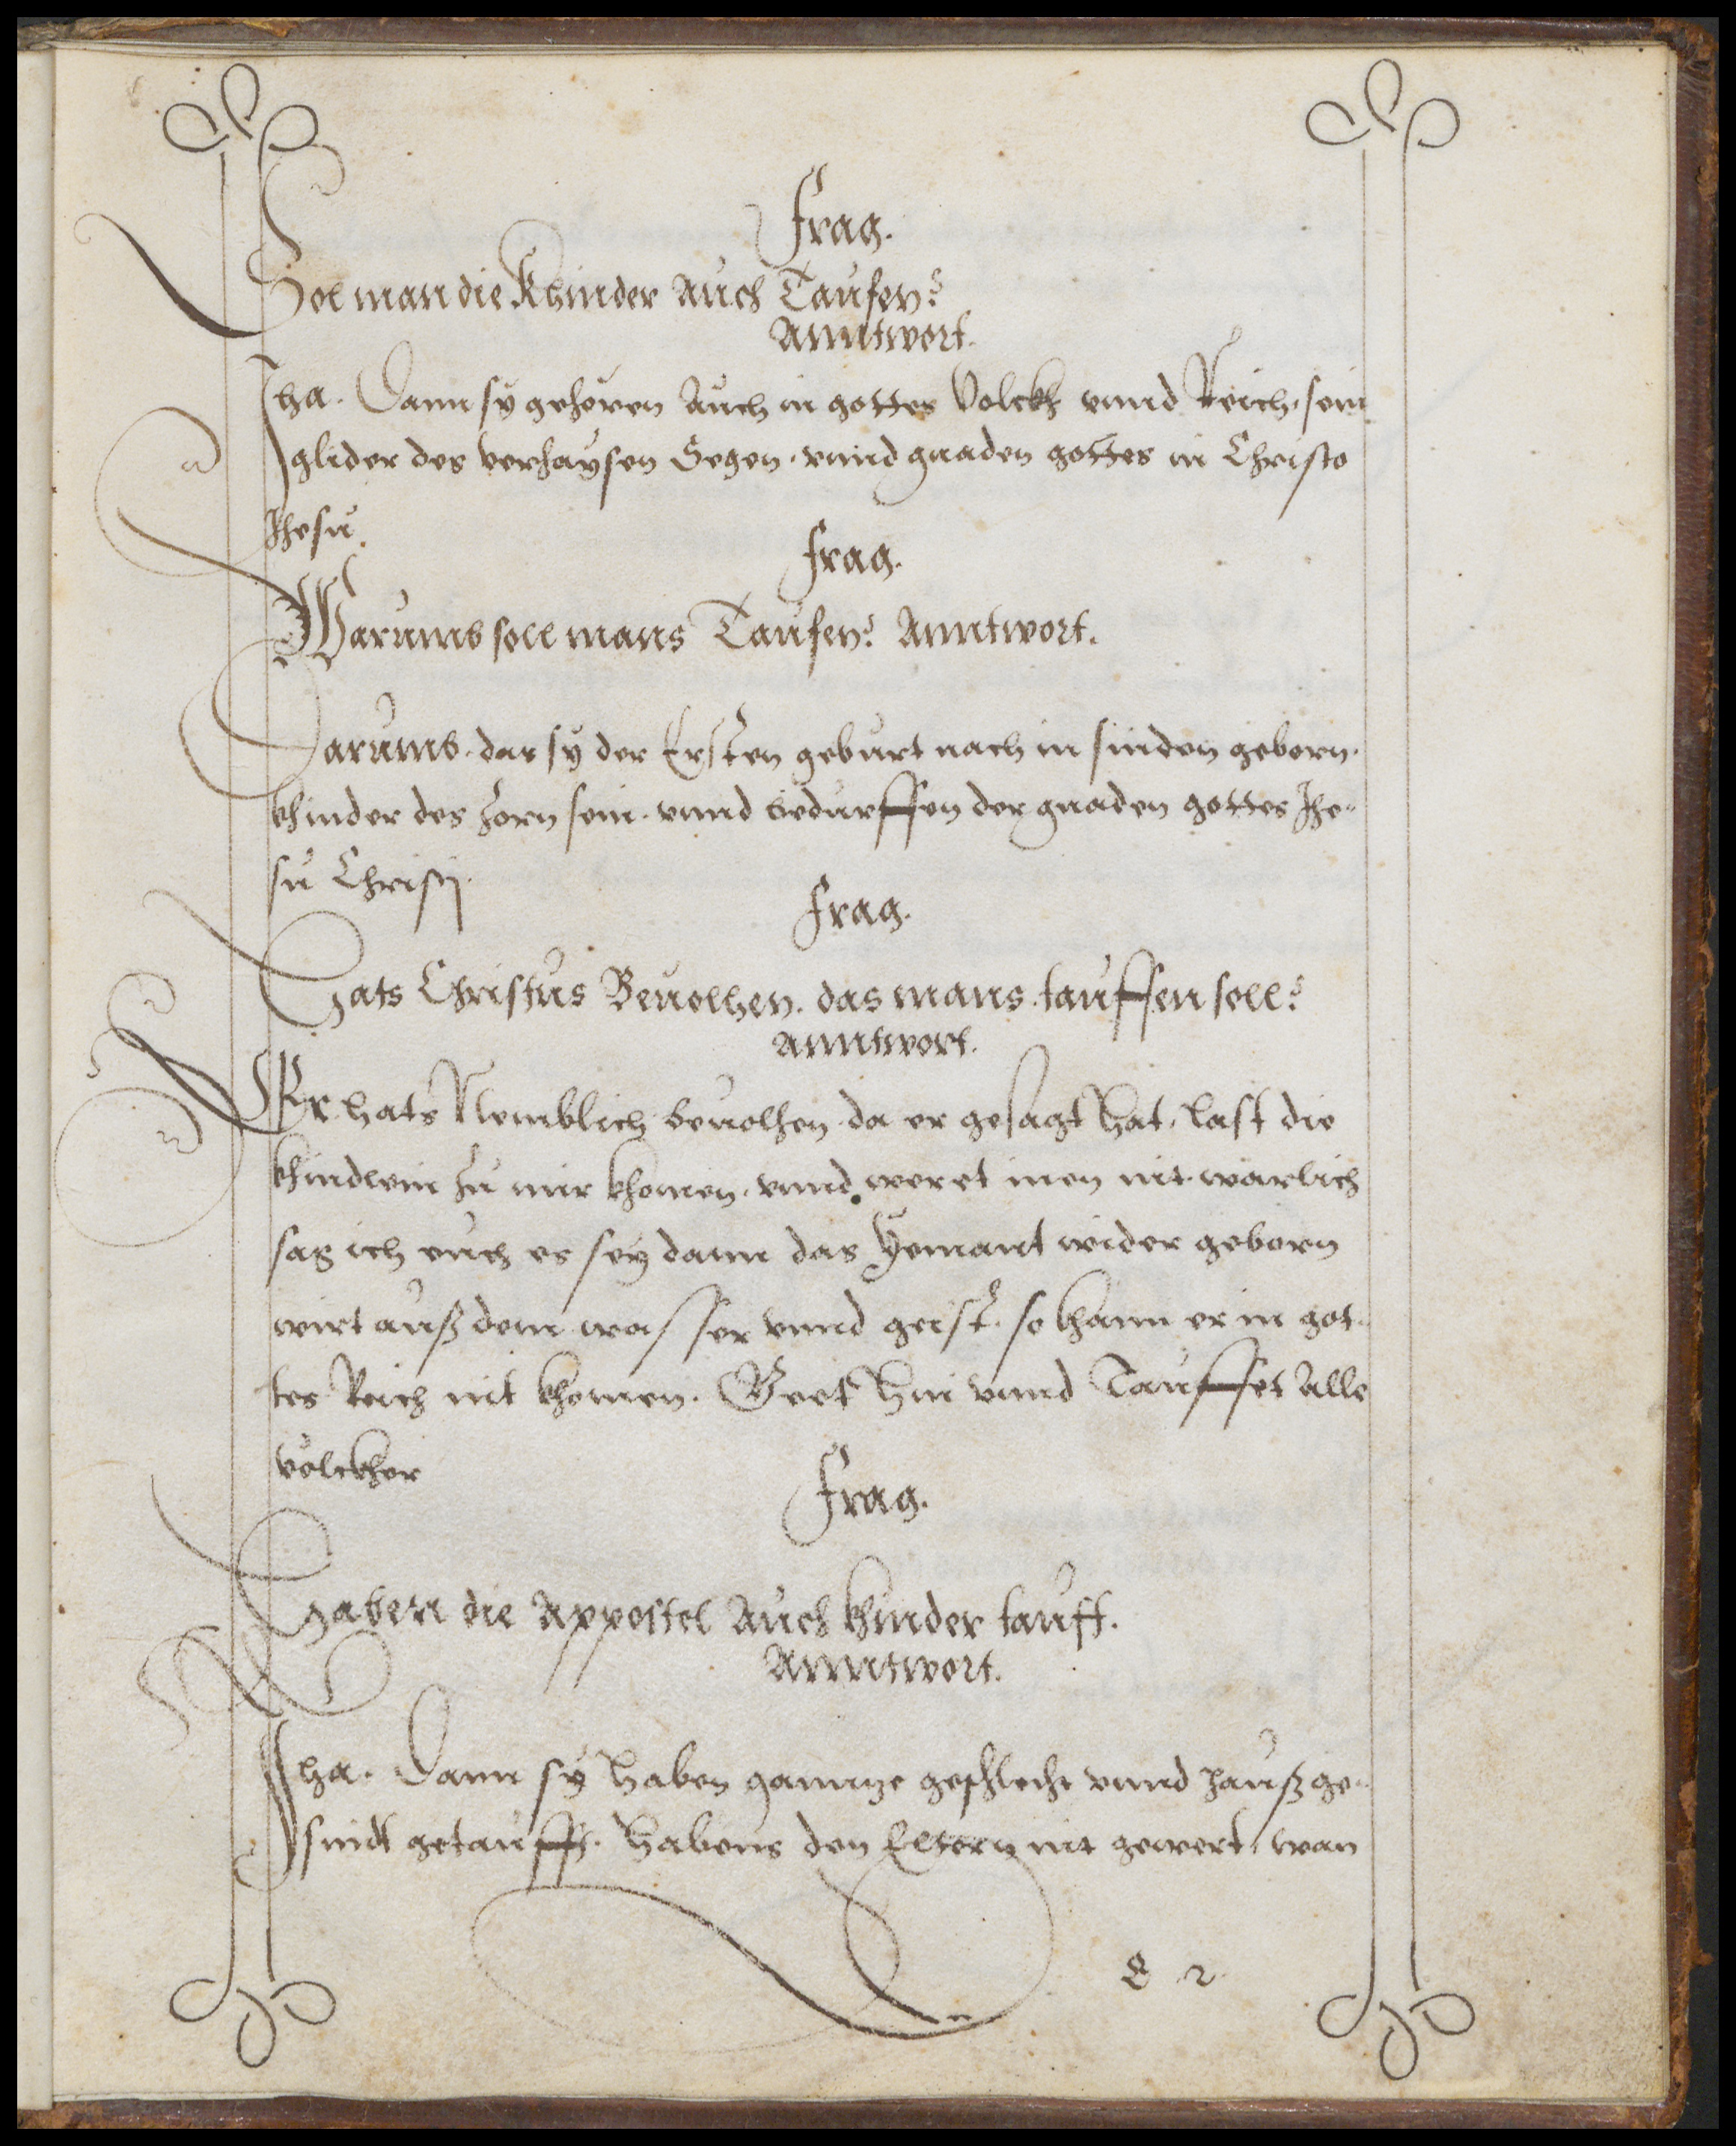 Frag.
Sol man die Khinder Auch Taufen?
Anntwort.
Jha. Dann sÿ gehören Auch in gottes Volckh vnnd Reich, sein
glider des verhaÿsen Segen. vnnd gnaden gottes in Christo
Jhesu.
Frag.
Warumb soll mans Taufen? Anntwort.
Darumb. das sÿ der Ersten geburt nach in sünden geborn.
khinder des Zorn sein. vnnd bedurffen der gnaden gottes Jhe-
su Christj.
Frag.
Hats Christus Beuolhen. das mans tauffen soll?
Anntwort.
Er hats Nemblich beuolhen da er gesagt hat, last die
khindlein zu mir khomen, vnnd weret inen nit. warlich
sag ich euch es seÿ dann das Yemant wider geborn
wirt auß dem wasser vnnd geist. so khann er in got-
tes Reich nit khomen. Geet hin vnnd Tauffet Alle
völckher
Frag.
Haben die Appostel Auch khinder taufft.
Anntwort.
Jha. Dann sÿ haben ganntze geschlecht vnnd haußge-
sindt getaufft. habens den Eltern nit gewert, wan
E 2